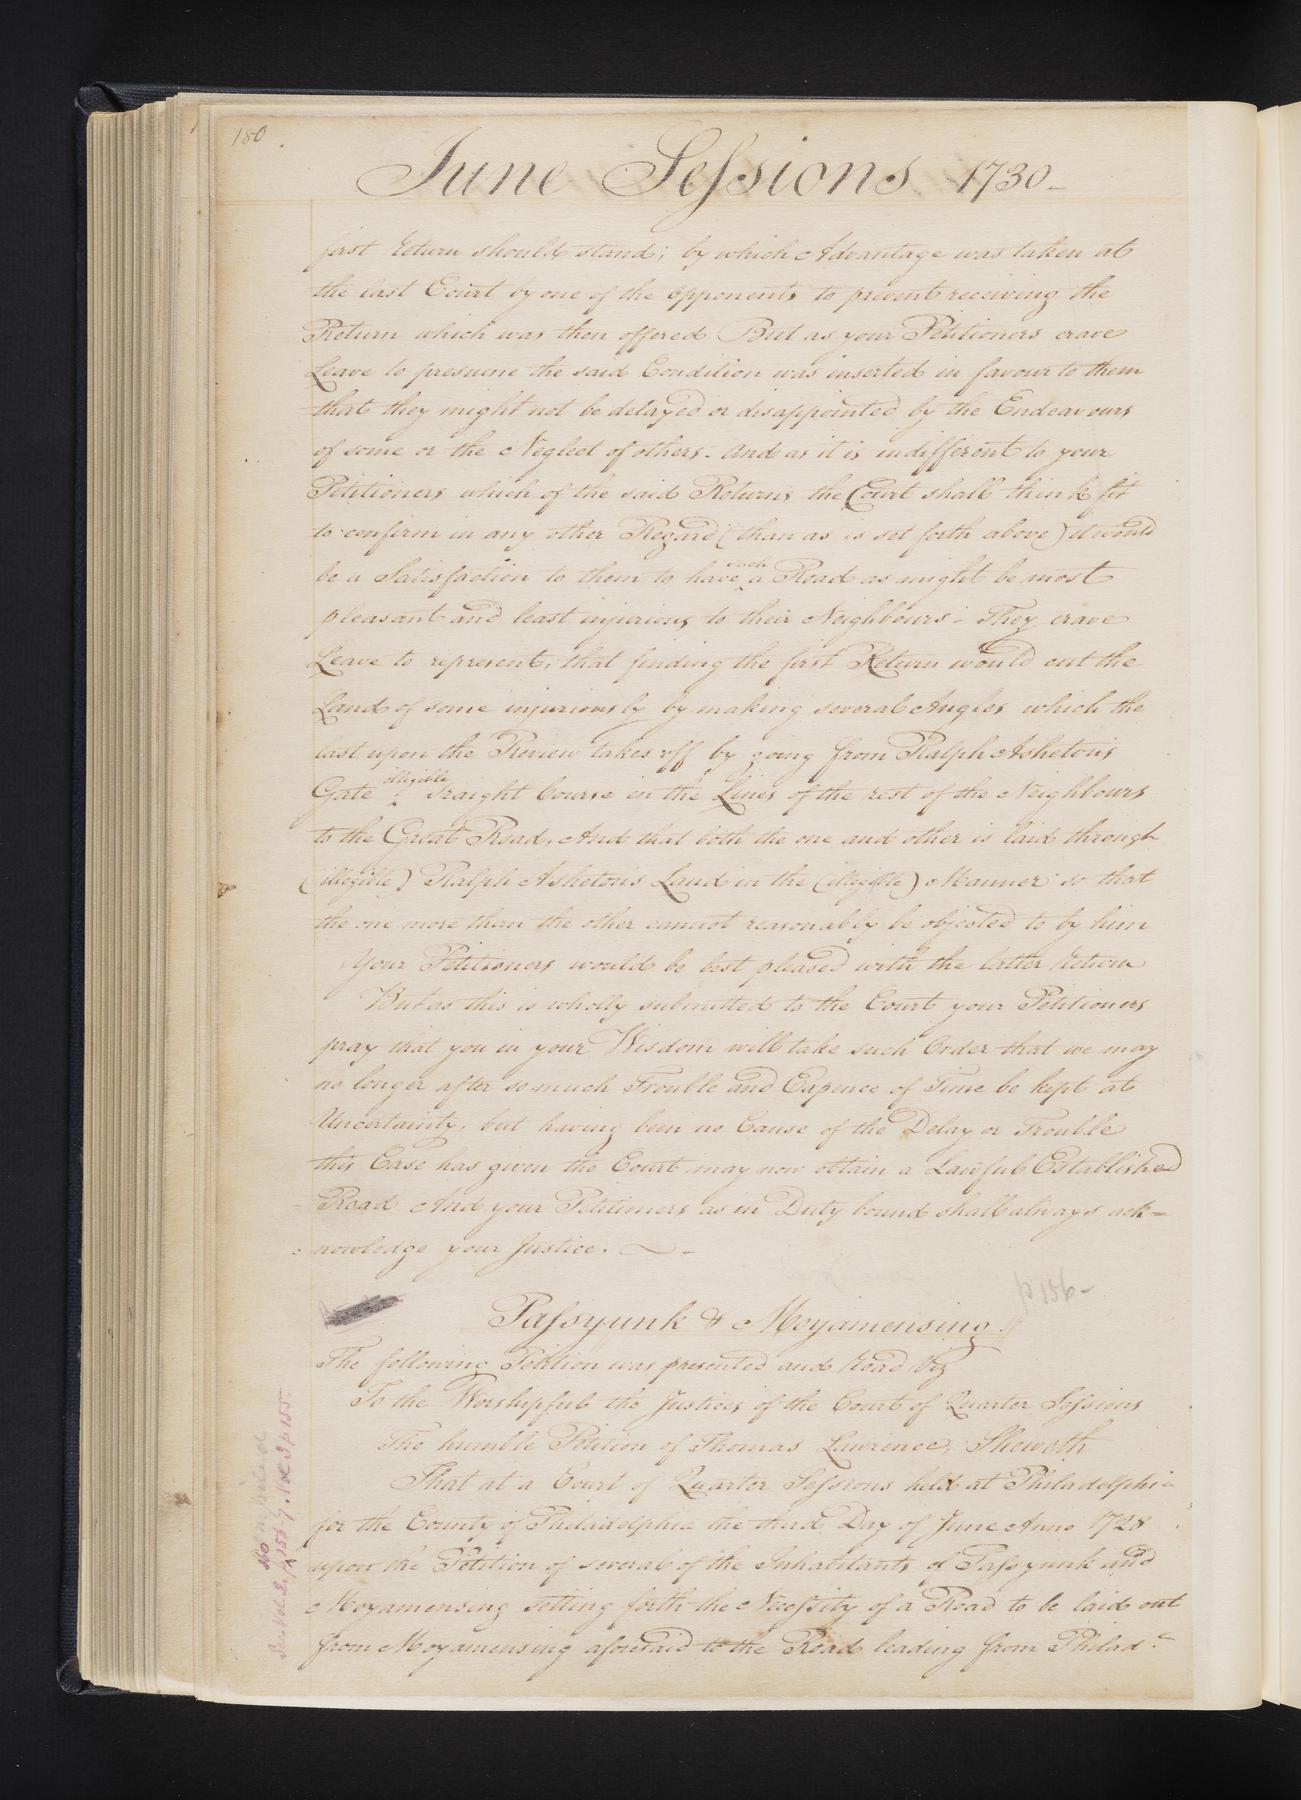 180
June Sessions 1730-
first return should stand; by which Advantage was taken at
the last Court by one of the opponents to prevent receiving the
Return which was then offered But as your Petitioners crave
Leave to presume the said Condition was inserted in favour to them
that they might not be delayed or disappointed by the Endeavours
of some or the Neglect of others. And as it is indifferent to your
Petitioners which of the said Returns the Court shall think fit
to confirm in any other Regard (than as is set forth above) it would
be a Satisfaction to them to have such a Road as might be most
pleasant and least injurious to their Neighbours - They crave
Leave to represent, that finding the first Return would cut the
Land of some injuriously by making several Angles which the
last upon the Review takes off by going from Ralph Asheton's
Gate illegible sraight Course in the Lines of the rest of the Neighbours
to the Great Road, And that both the one and other is laid through
(illegible) Ralph Asheton's Land in the (illegible) Manner so that
the one more than the other cannot reasonably be objected to by him
Your Petitioners would be best pleased with the latter return
But as this is wholly submitted to the Court your Petitioners
pray that you in your Wisdom will take such Order that we may
no longer after so much Trouble and Expence of Time be kept at
Uncertainty, but having been no Cause of the Delay or Trouble
this Case has given the Court may now obtain a Lawful Established
Road And your Petitioners as in Duty bound shall always ack=
nowledge your Justice.
p 186-
Passyunk & Moyamensing.
The following Petition was presented and read Viz
To the Worshipful the Justices of the Court of Quarter Sessions
The humble Petition of Thomas Lawrence, Sheweth
That at a Court of Quarter Sessions held at Philadelphia
for the County of Philadelphia the third Day of June Anno 1728
upon the Petition of several of the Inhabitants of Passyunk and
Moyamensing setting forth the Necessity of a Road to be laid out
from Moyamensing aforesaid to the Road leading from Philad.a